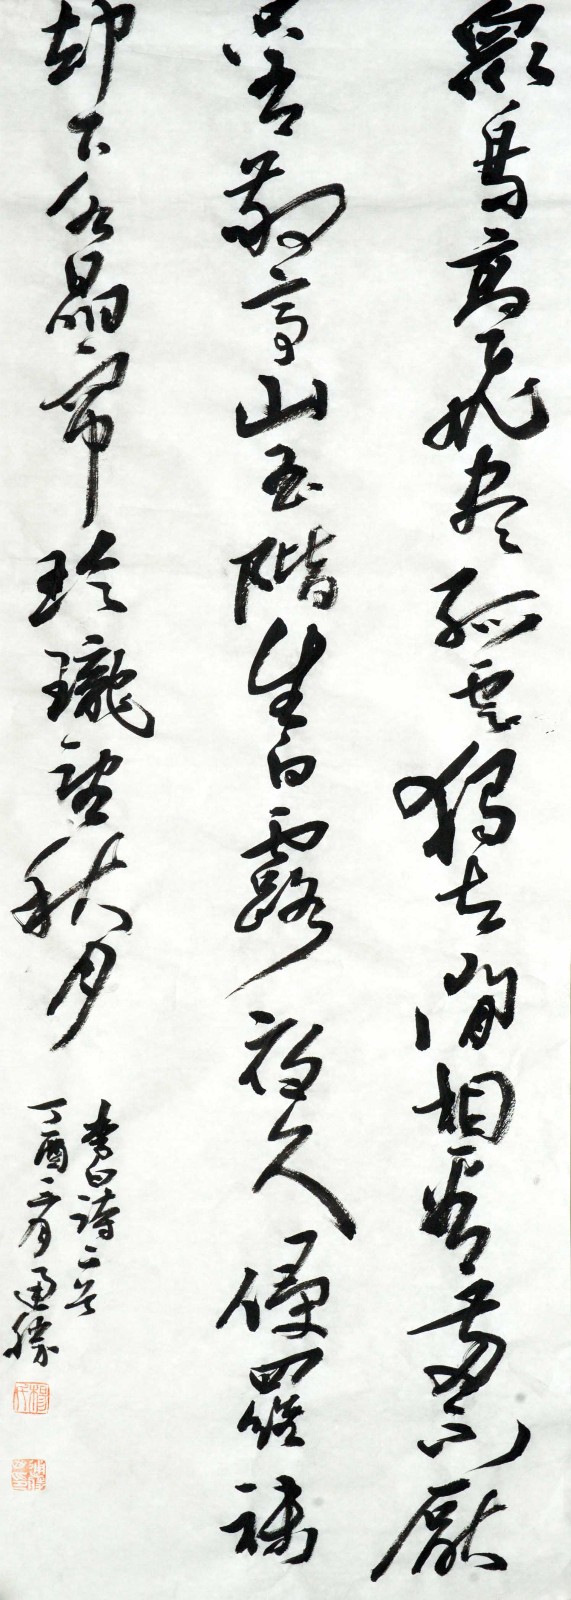 眾鳥高飛盡孤雲獨去閒相看兩不厭
只有敬亭山玉階生白露夜久侵羅襪
却下水晶帘玲瓏望秋月
李白詩二首
丁酉二月勝